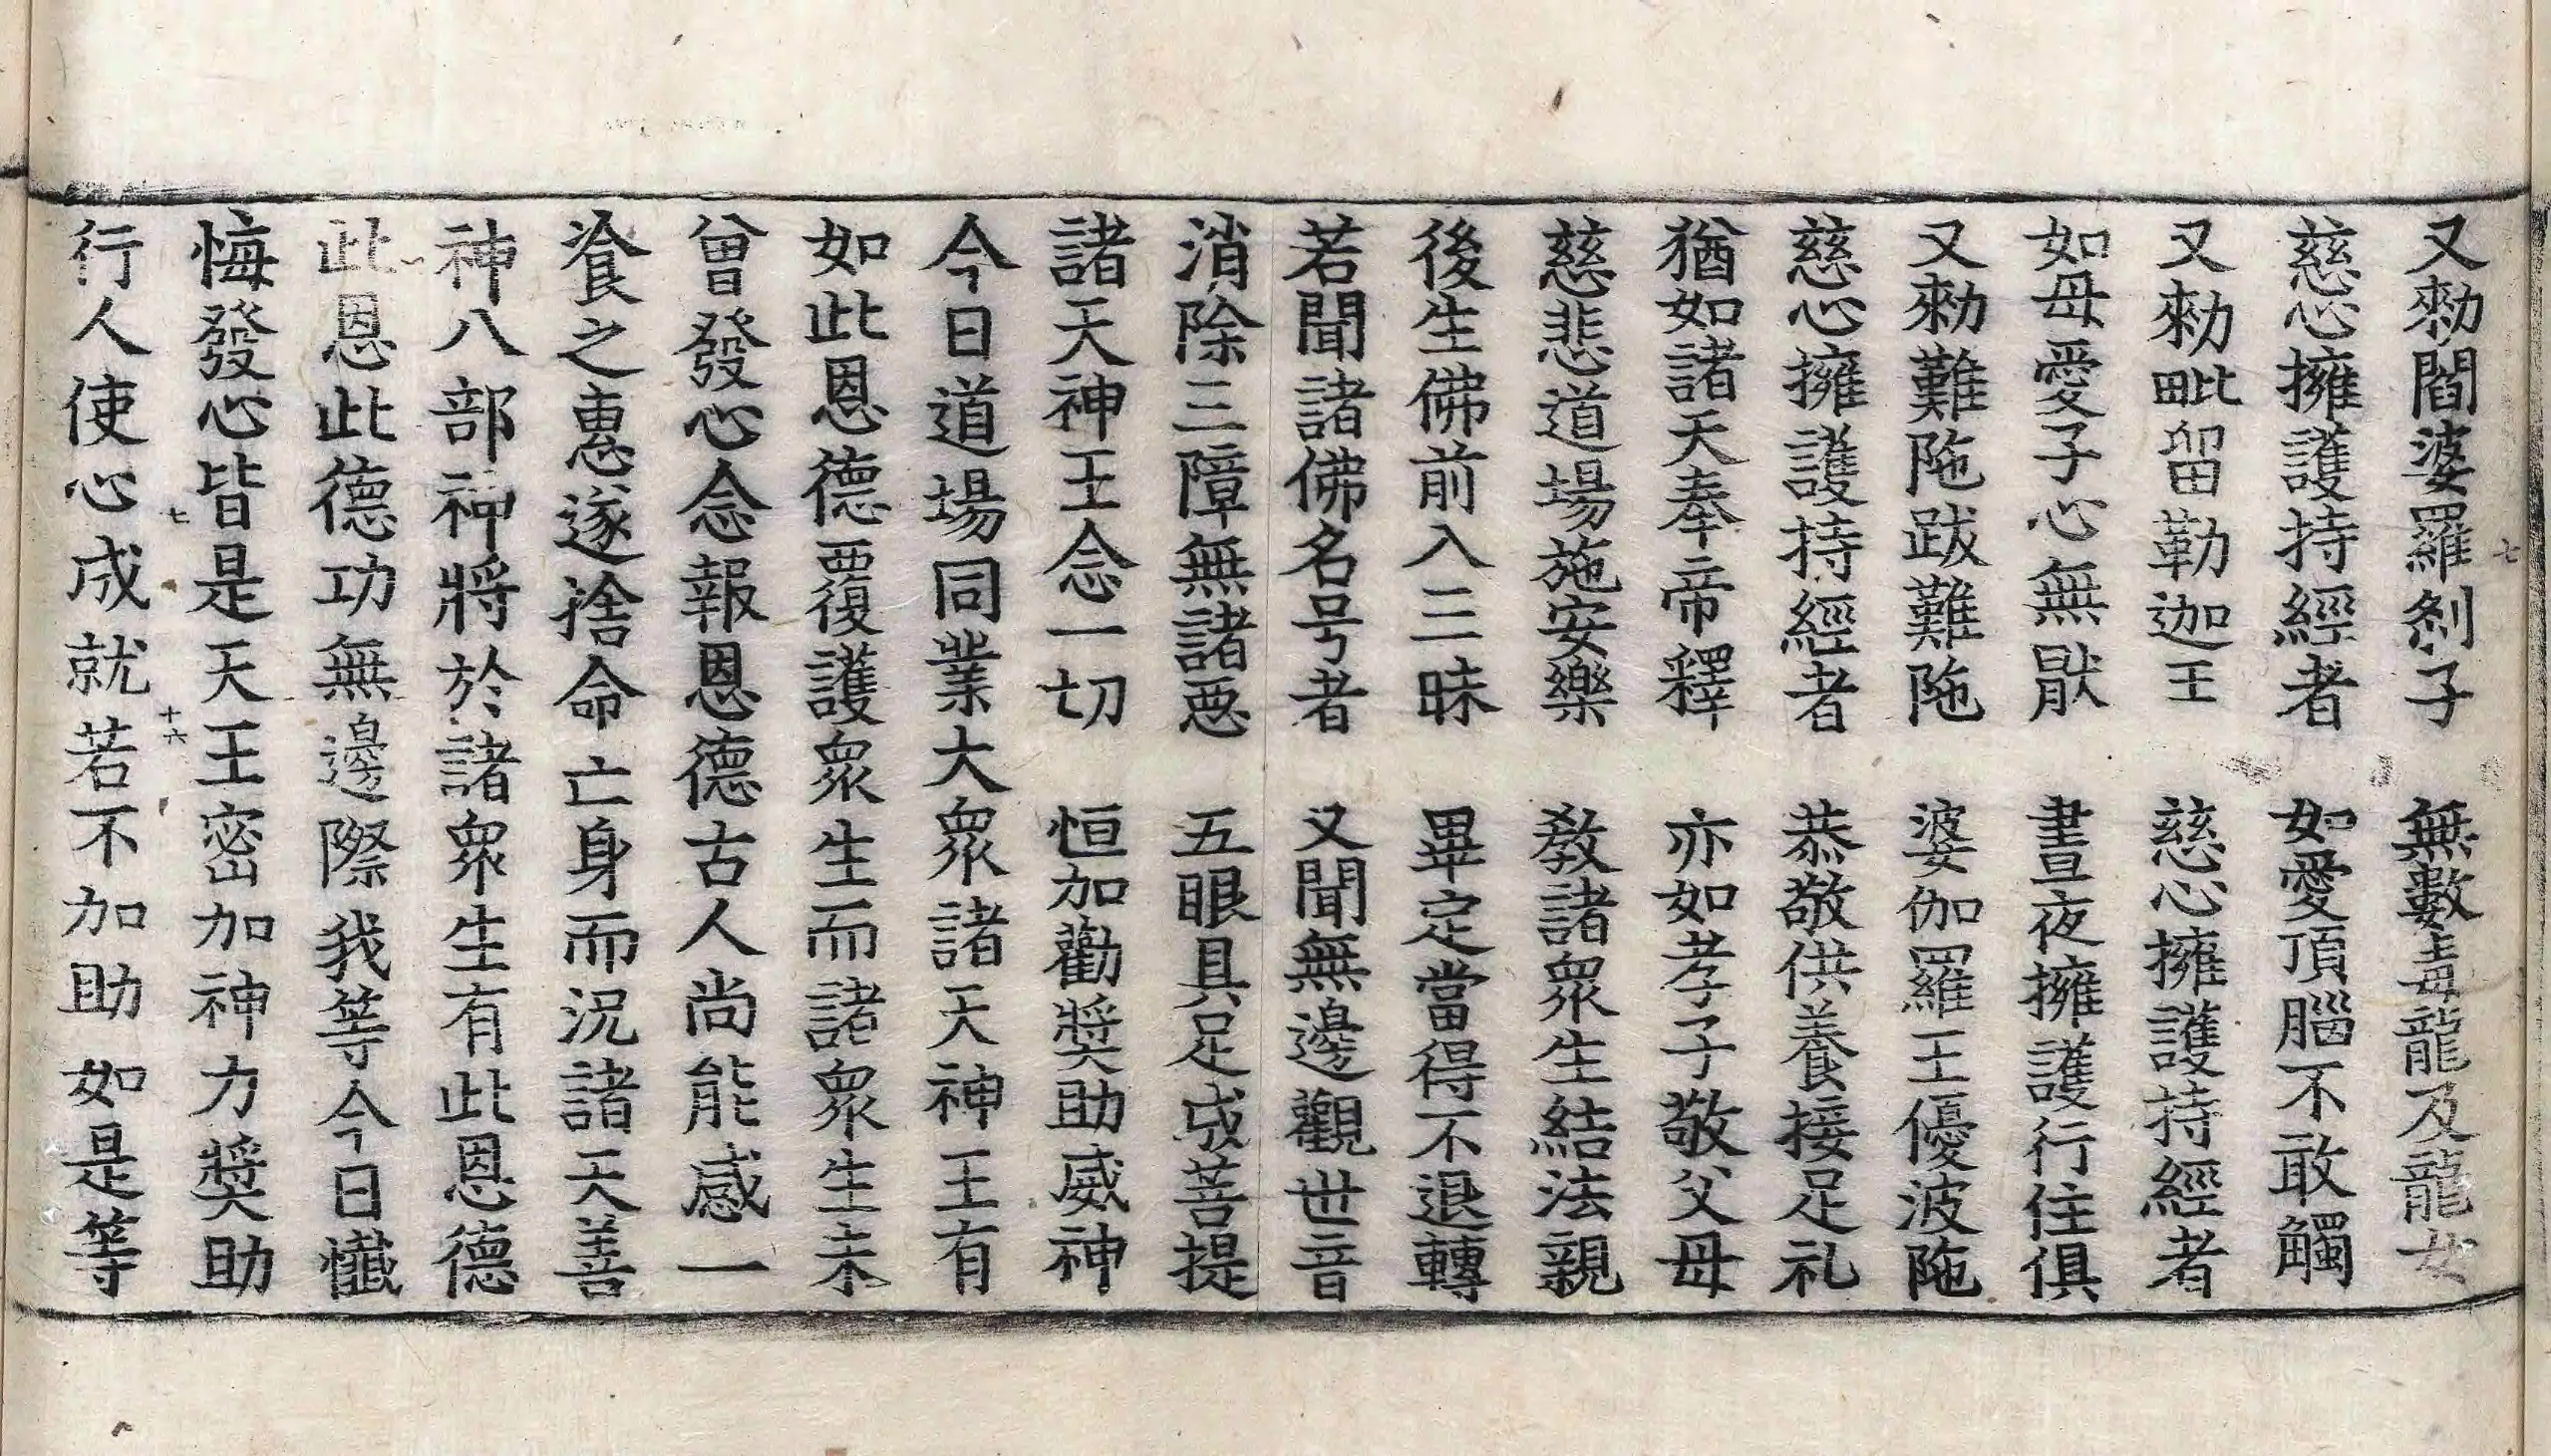 又勑閻婆羅剎子　無數毒龍及龍女
慈心擁護持經者　如愛頂腦不敢觸
又勑毗留勒迦王　慈心擁護持經者
如母愛子心無猒　晝夜擁護行住俱
又勑難陁跋難陁　婆伽羅王優波陁
慈心擁護持經者　恭敬供養接足礼
猶如諸天奉帝釋　亦如孝子敬父母
慈悲道場施安樂　教諸衆生結法親
後生佛前入三昧　畢定當得不退轉
若聞諸佛名号者　又聞無邊觀世音
消除三障無諸惡　五眼具足成菩提
諸天神王念一切　恒加勸奬助威神
今日道場同業大衆諸天神王有
如此恩德覆護衆生而諸衆生未
曾發心念報恩德古人尚能感一
飡之惠遂捨命亡身而況諸天善
神八部神將於諸衆生有此恩德
此恩此德功無邊際我等今日懺
悔發心皆是天王密加神力奬助
行人使心成就若不加助如是等
七
七
十六